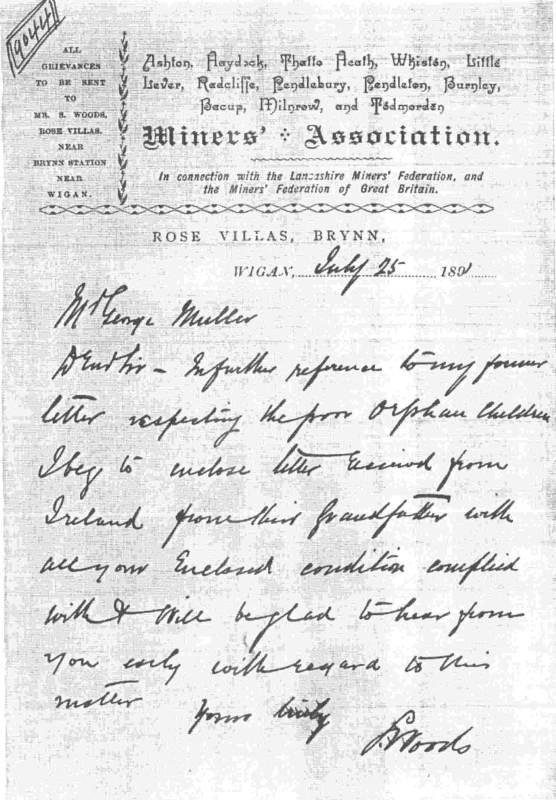 9044
ALL
GRIEVANCES
TO BE SENT
TO
MR. S. WOODS,
ROSE VILLAS,
NEAR
BRYNN STATION
NEAR
WIGAN.
Ashton, Haydock, Thatto Heath, Whiston, Little
Lever, Radcliffe, Pendlebury, Pendleton, Burnley,
Bacup, Milnrow, and Todmorden
Miners' Association.
In connection with the Lancashire Miners' Federation, and
the Miners' Federation of Great Britain.
ROSE VILLAS, BRYNN,
WIGAN, July 25 1891
Mr George Muller
Dear Sir - In further reference to my former
letter respecting the poor Orphan Children
I beg to enclose letter received from
Ireland from their Grandfather with
all your Enclosed condition complied
with & Will be glad to hear from
you early with regard to this
matter
Yours truly
S Woods